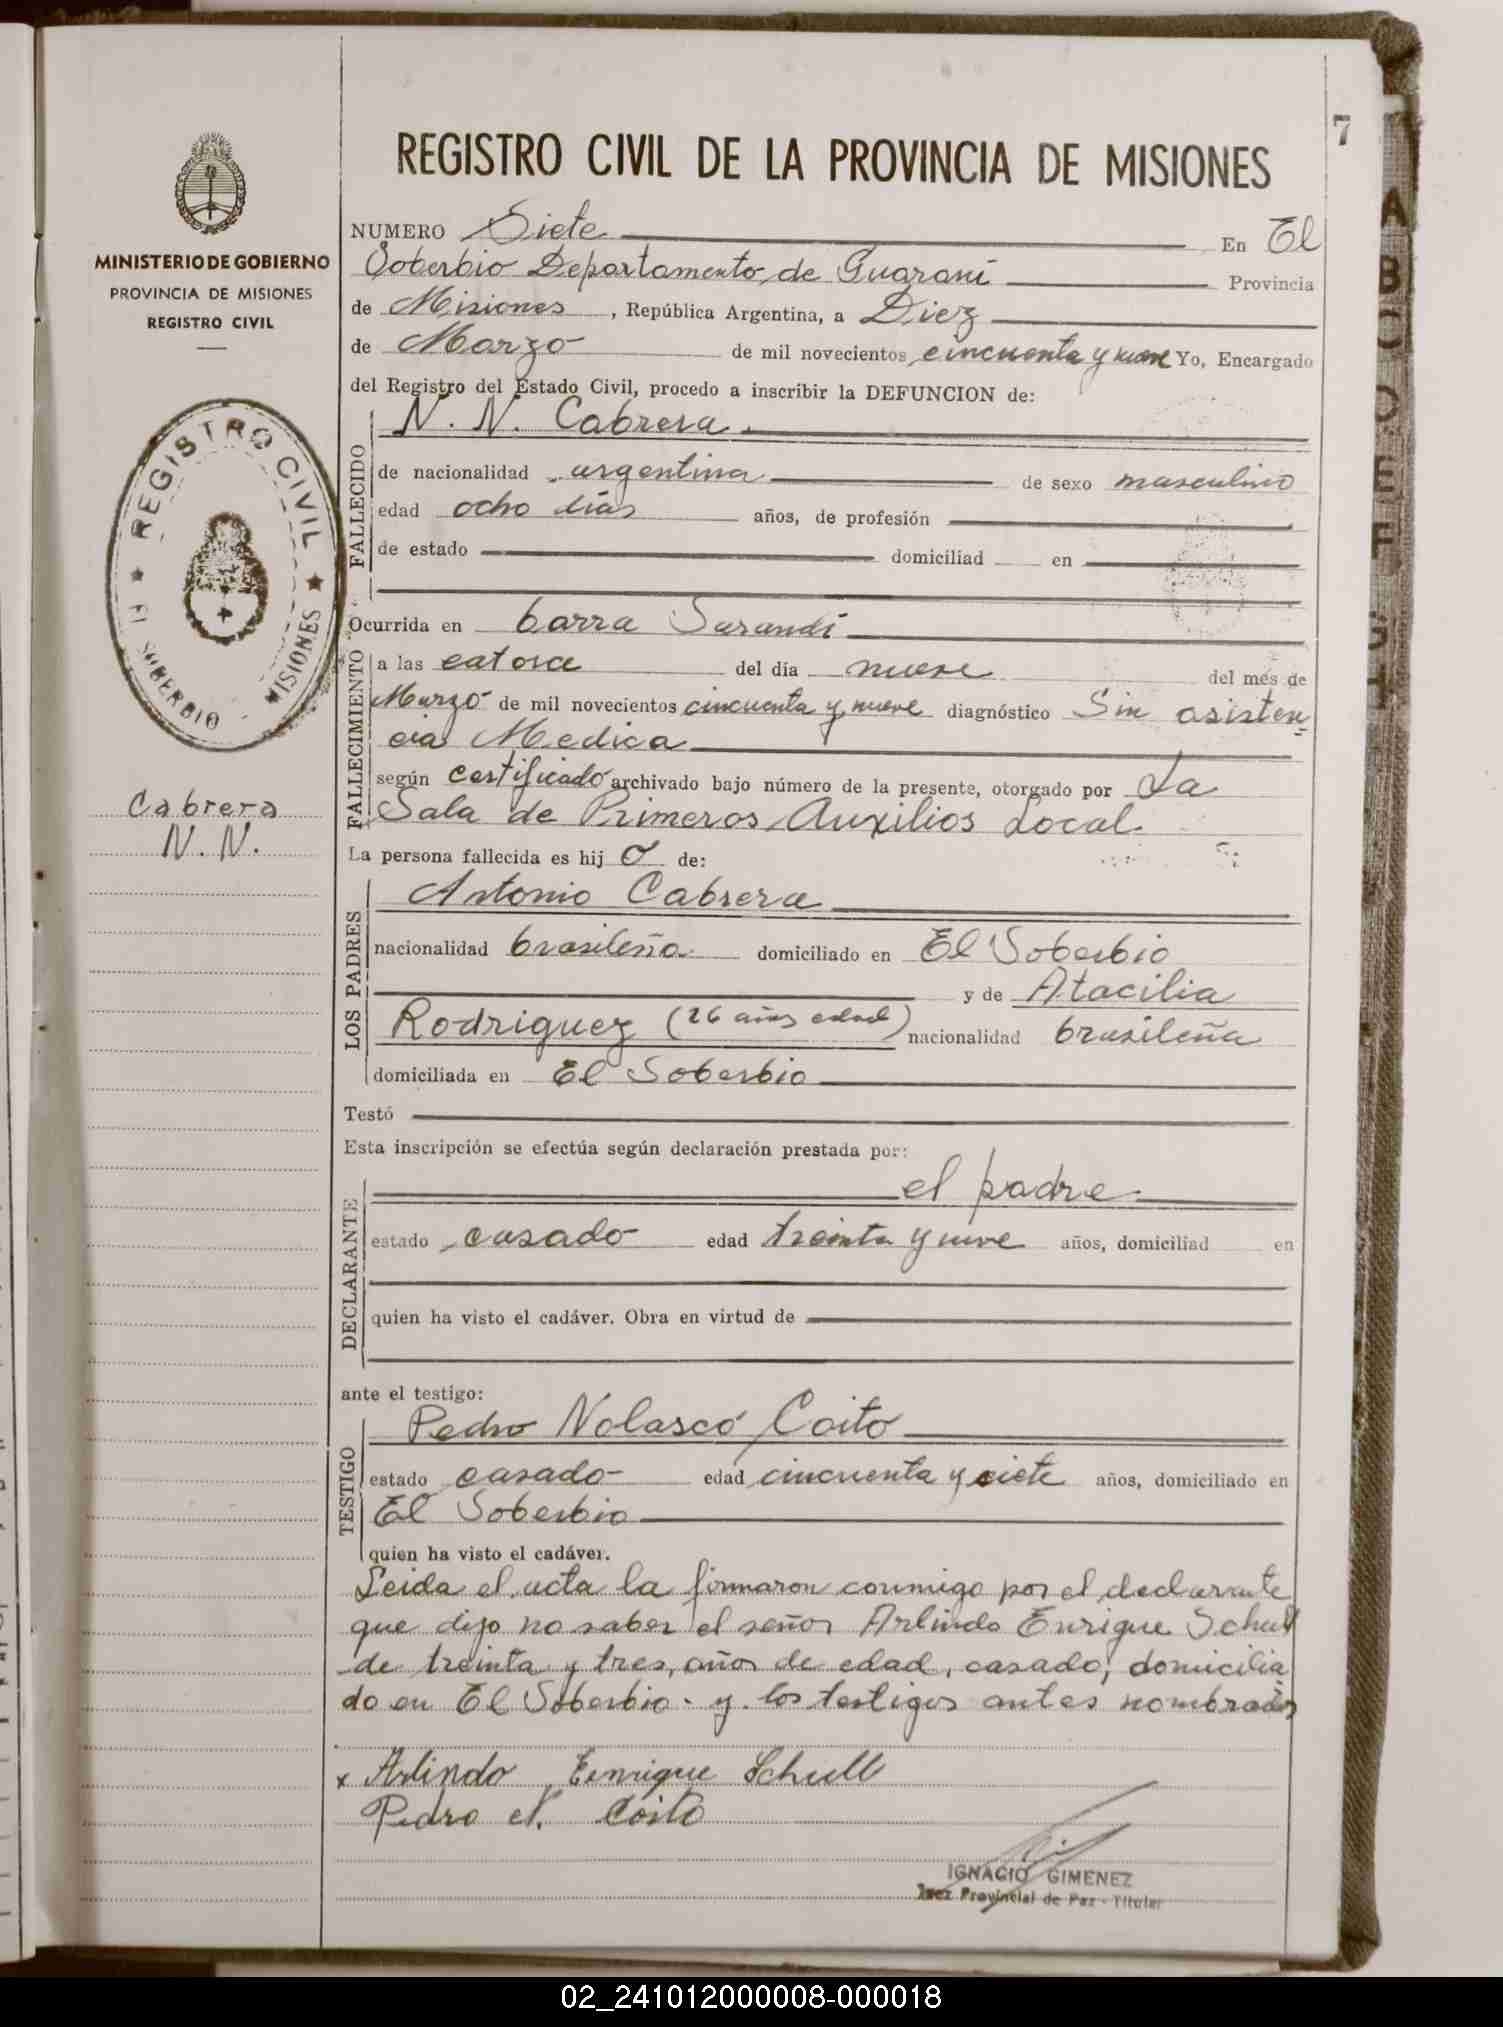 7
REGISTRO CIVIL DE LA PROVINCIA DE MISIONES
MINISTERIO DE GOBIERNO
PROVINCIA DE MISIONES
REGISTRO CIVIL
REGISTRO CIVIL
EL SOBERBIO MISIONES
Cabrera
N. N.
NUMERO Siete En El
Soberbio Departamento de Guaraní Provincia
de Misiones, República Argentina, a Diez
de Marzo de mil novecientos cincuenta y nueve Yo, Encargado
del Registro del Estado Civil, procedo a inscribir la DEFUNCION de:
FALLECIDO
N. N. Cabrera.
de nacionalidad argentina de sexo masculino
edad ocho días años, de profesión
de estado domiciliad en
Ocurrida en barra Sarandí
FALLECIMIENTO
a las catorce del día nueve del més de
Marzo de mil novecientos cincuenta y nueve diagnóstico Sin asisten
cia Medica
según certificado archivado bajo número de la presente, otorgado por La
Sala de Primeros Auxilios Local.
La persona fallecida es hij o de:
LOS PADRES
Antonio Cabrera
nacionalidad brasileña domiciliado en El Soberbio
y de Atacilia
Rodriguez (26 años edad) nacionalidad brasileña
domiciliada en El Soberbio
Testó
Esta inscripción se efectúa según declaración prestada por:
DECLARANTE
el padre
estado casado edad treinta y nueve años, domiciliad en
quien ha visto el cadáver. Obra en virtud de
ante el testigo:
TESTIGO
Pedro Nolasco Coito
estado casado edad cincuenta y siete años, domiciliado en
El Soberbio
quien ha visto el cadáver.
Leida el acta la firmaron conmigo por el declarante
que dijo no saber el señor Arlindo Enrique Schull
de treinta y tres, años de edad, casado, domicilia
do en El Soberbio. y los testigos antes nombrados
x Arlindo Enrique Schull
Pedro N. Coito
IGNACIO GIMENEZ
Juez Provincial de Paz - Titular
A
B
C
D
E
F
G
H
02_241012000008-000018